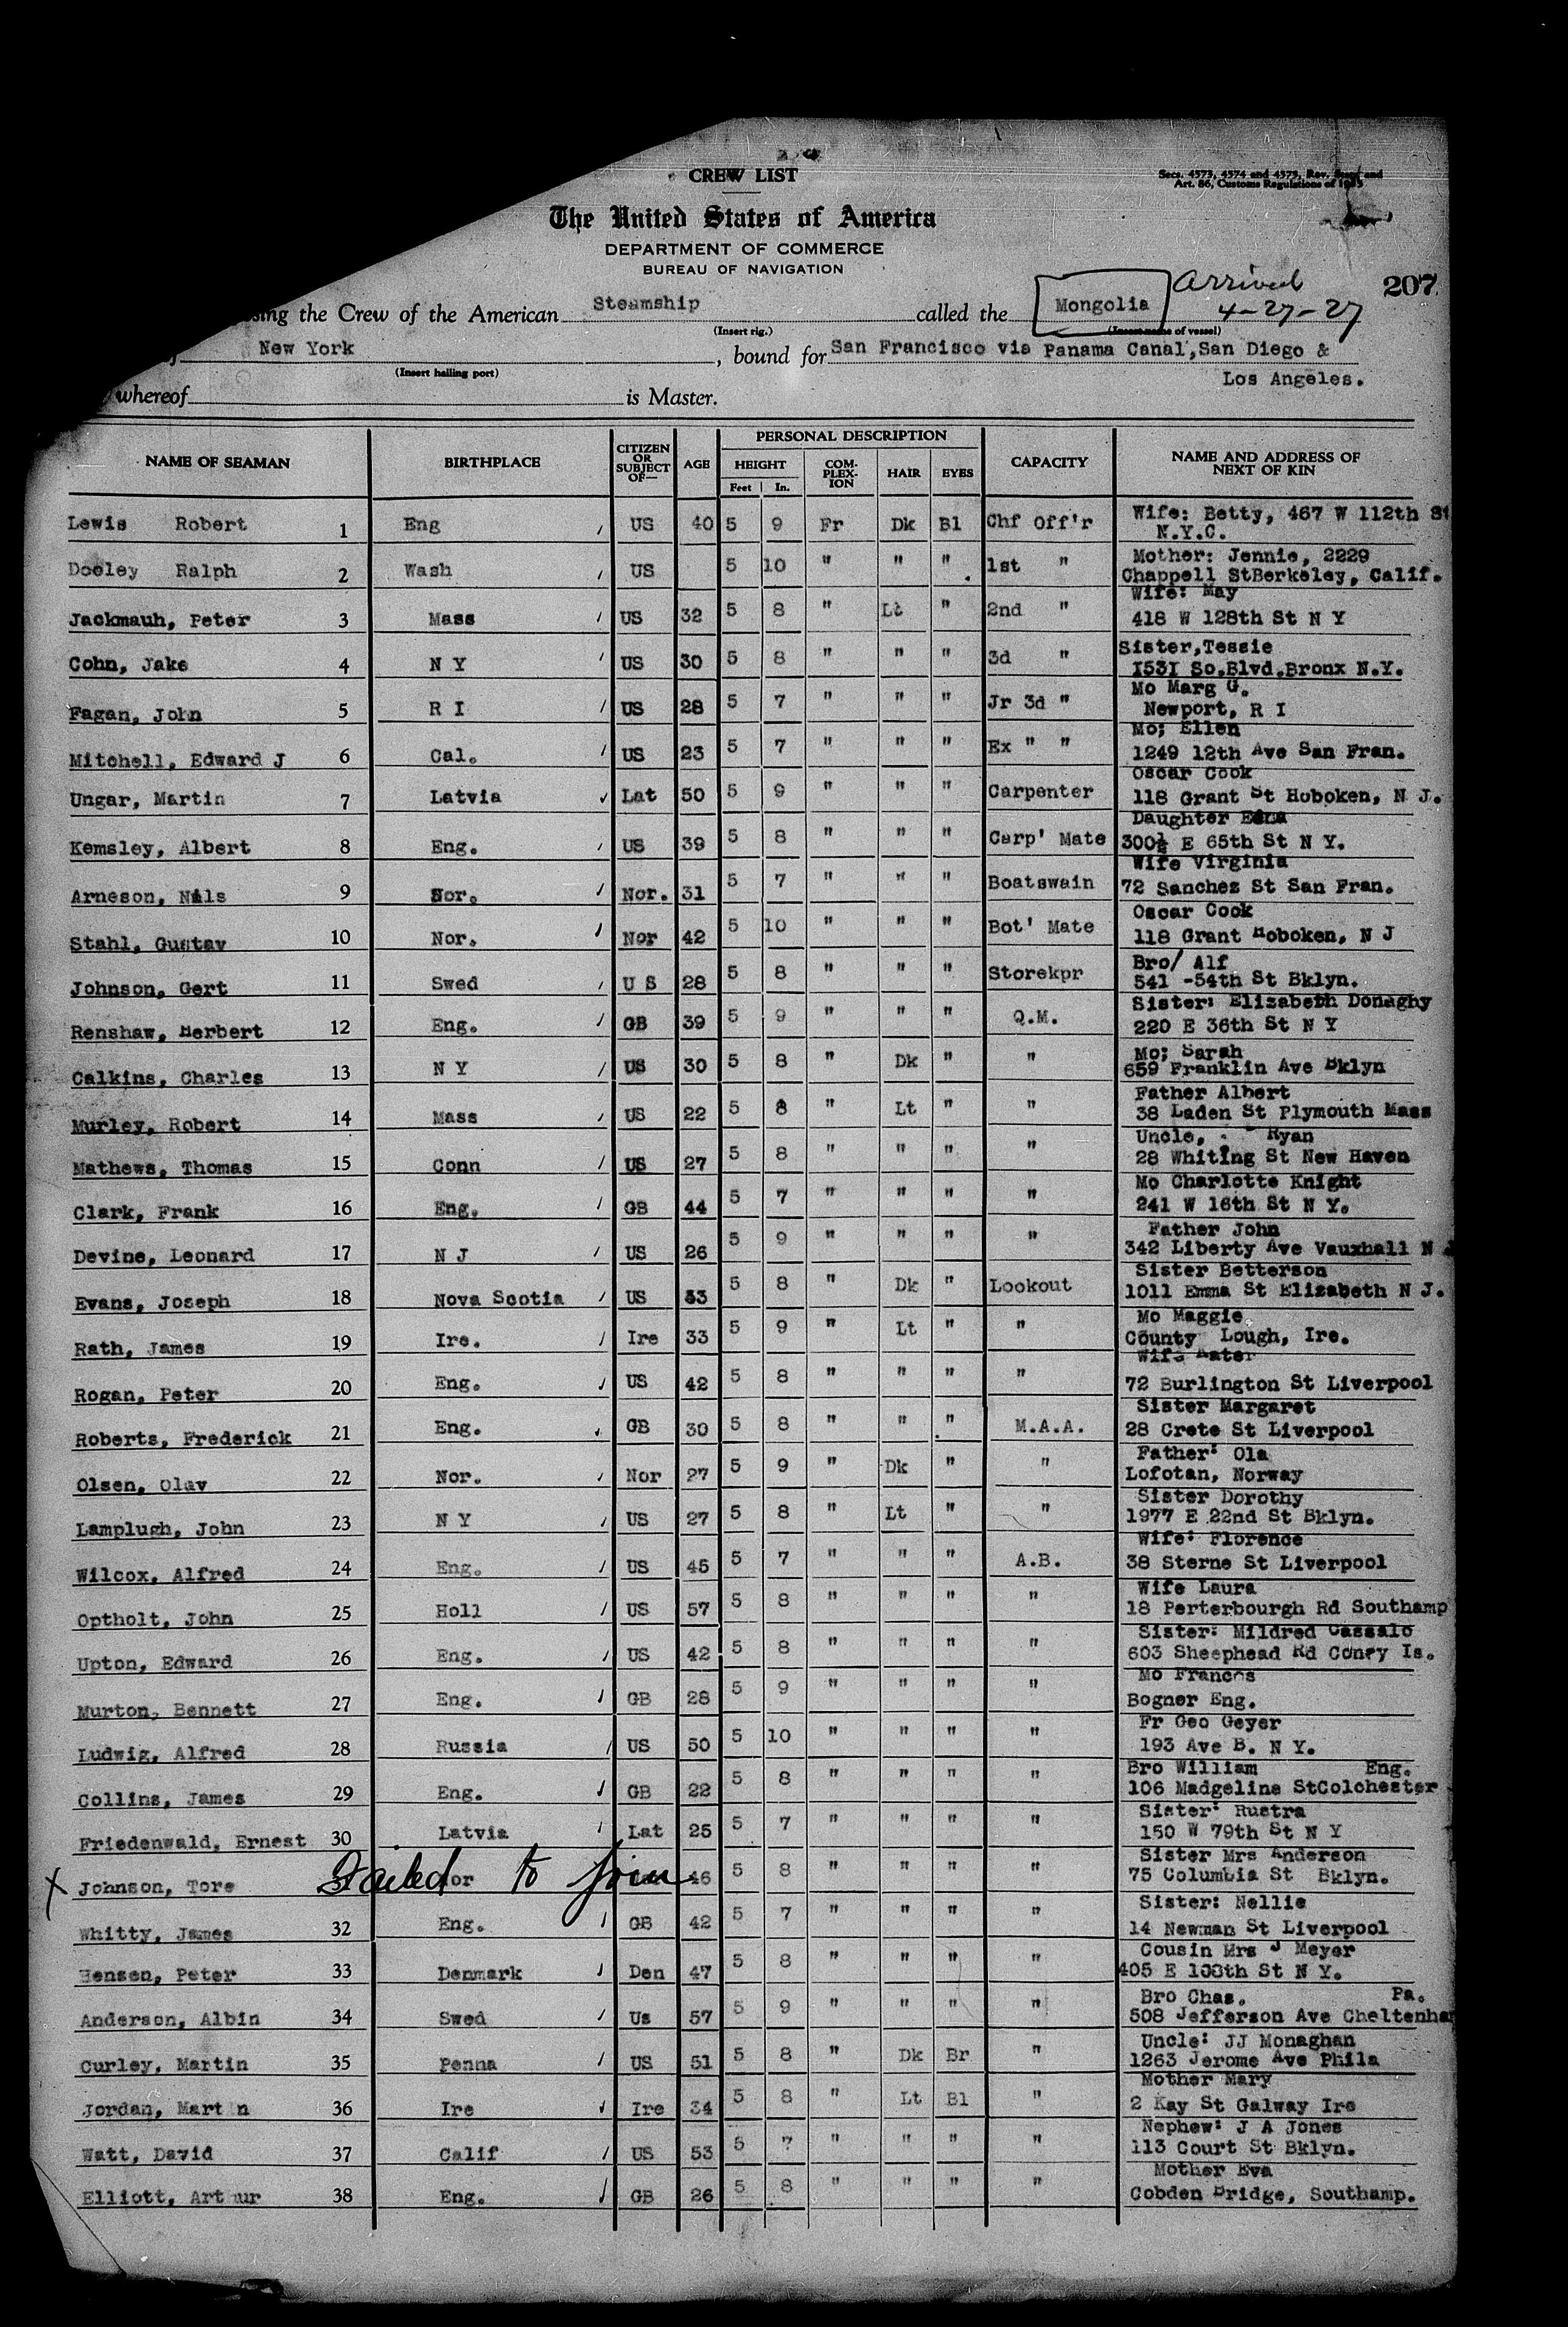 CREW LIST
Secs. 4573, 4574 and 4575, Rev. and
Art. 86, Customs Regulations of
The United States of America
DEPARTMENT OF COMMERCE
BUREAU OF NAVIGATION
Arrived
207
the Crew of the American Steamship called the Mongolia 4-27-27
(Insert rig.) (Insert name of vessel)
New York, bound for San Francisco via Panama Canal, San Diego &
(Insert hailing port)
Los Angeles.
whereof is Master.
NAME OF SEAMAN BIRTHPLACE CITIZEN OR SUBJECT OF— AGE PERSONAL DESCRIPTION CAPACITY NAME AND ADDRESS OF NEXT OF KIN
HEIGHT COM-PLEX-ION HAIR EYES
Feet In.
Lewis Robert 1 Eng US 40 5 9 Fr Dk Bl Chf Off'r Wife: Betty, 467 W 112th St
N.Y.C.
Dooley Ralph 2 Wash US 5 10 " " " 1st " Mother: Jennie, 2229
Chappell StBerkeley, Calif.
Jackmauh, Peter 3 Mass US 32 5 8 " Lt " 2nd " Wife: May
418 W 128th St N Y
Cohn, Jake 4 N Y US 30 5 8 " " " 3d " Sister,Tessie
1531 So.Blvd.Bronx N.Y.
Fagan, John 5 R I US 28 5 7 " " " Jr 3d " Mo Marg G.
Newport, R I
Mitchell, Edward J 6 Cal. US 23 5 7 " " " Ex " " Mo; Ellen
1249 12th Ave San Fran.
Ungar, Martin 7 Latvia Lat 50 5 9 " " " Carpenter Oscar Cook
118 Grant St Hoboken, N J.
Kemsley, Albert 8 Eng. US 39 5 8 " " " Carp' Mate Daughter Edna
300½ E 65th St N Y.
Arneson, Nils 9 Nor. Nor. 31 5 7 " " " Boatswain Wife Virginia
72 Sanchez St San Fran.
Stahl, Gustav 10 Nor. Nor 42 5 10 " " " Bot' Mate Oscar Cook
118 Grant Hoboken, N J
Johnson, Gert 11 Swed U S 28 5 8 " " " Storekpr Bro/ Alf
541 -54th St Bklyn.
Renshaw, Herbert 12 Eng. GB 39 5 9 " " " Q.M. Sister: Elizabeth Donaghy
220 E 36th St N Y
Calkins, Charles 13 N Y US 30 5 8 " Dk " " Mo; Sarah
659 Franklin Ave Bklyn
Murley, Robert 14 Mass US 22 5 8 " Lt " " Father Albert
38 Laden St Plymouth Mass
Mathews, Thomas 15 Conn US 27 5 8 " " " " Uncle, Ryan
28 Whiting St New Haven
Clark, Frank 16 Eng. GB 44 5 7 " " " " Mo Charlotte Knight
241 W 16th St N Y.
Devine, Leonard 17 N J US 26 5 9 " " " " Father John
342 Liberty Ave Vauxhall N J
Evans, Joseph 18 Nova Scotia US 33 5 8 " Dk " Lookout Sister Betterson
1011 Emma St Elizabeth N J.
Rath, James 19 Ire. Ire 33 5 9 " Lt " " Mo Maggie
County Lough, Ire.
Rogan, Peter 20 Eng. US 42 5 8 " " " " Wife
72 Burlington St Liverpool
Roberts, Frederick 21 Eng. GB 30 5 8 " " " M.A.A. Sister Margaret
28 Crete St Liverpool
Olsen, Olav 22 Nor. Nor 27 5 9 " Dk " " Father: Ola
Lofotan, Norway
Lamplugh, John 23 N Y US 27 5 8 " Lt " " Sister Dorothy
1977 E 22nd St Bklyn.
Wilcox, Alfred 24 Eng. US 45 5 7 " " " A.B. Wife: Florence
38 Sterne St Liverpool
Optholt, John 25 Holl US 57 5 8 " " " " Wife Laura
18 Perterbourgh Rd Southamp
Upton, Edward 26 Eng. US 42 5 8 " " " " Sister: Mildred Cassalo
603 Sheephead Rd Coney Is.
Murton, Bennett 27 Eng. GB 28 5 9 " " " " Mo Frances
Bogner Eng.
Ludwig, Alfred 28 Russia US 50 5 10 " " " " Fr Geo Geyer
193 Ave B. N Y.
Collins, James 29 Eng. GB 22 5 8 " " " " Bro William Eng.
106 Madgeline StColchester
Friedenwald, Ernest 30 Latvia Lat 25 5 7 " " " " Sister: Rustra
150 W 79th St N Y
X Johnson, Tore Failed to join or 46 5 8 " " " " Sister Mrs Anderson
75 Columbia St Bklyn.
Whitty, James 32 Eng. GB 42 5 7 " " " " Sister: Nellie
14 Newman St Liverpool
Hensen, Peter 33 Denmark Den 47 5 8 " " " " Cousin Mrs J Meyer
405 E 108th St N Y.
Anderson, Albin 34 Swed Us 57 5 9 " " " " Bro Chas. Pa.
508 Jefferson Ave Cheltenham
Curley, Martin 35 Penna US 51 5 8 " Dk Br " Uncle: JJ Monaghan
1263 Jerome Ave Phila
Jordan, Martin 36 Ire Ire 34 5 8 " Lt Bl " Mother Mary
2 Kay St Galway Ire
Watt, David 37 Calif US 53 5 7 " " " " Nephew: J A Jones
113 Court St Bklyn.
Elliott, Arthur 38 Eng. GB 26 5 8 " " " " Mother Eva
Cobden Bridge, Southamp.